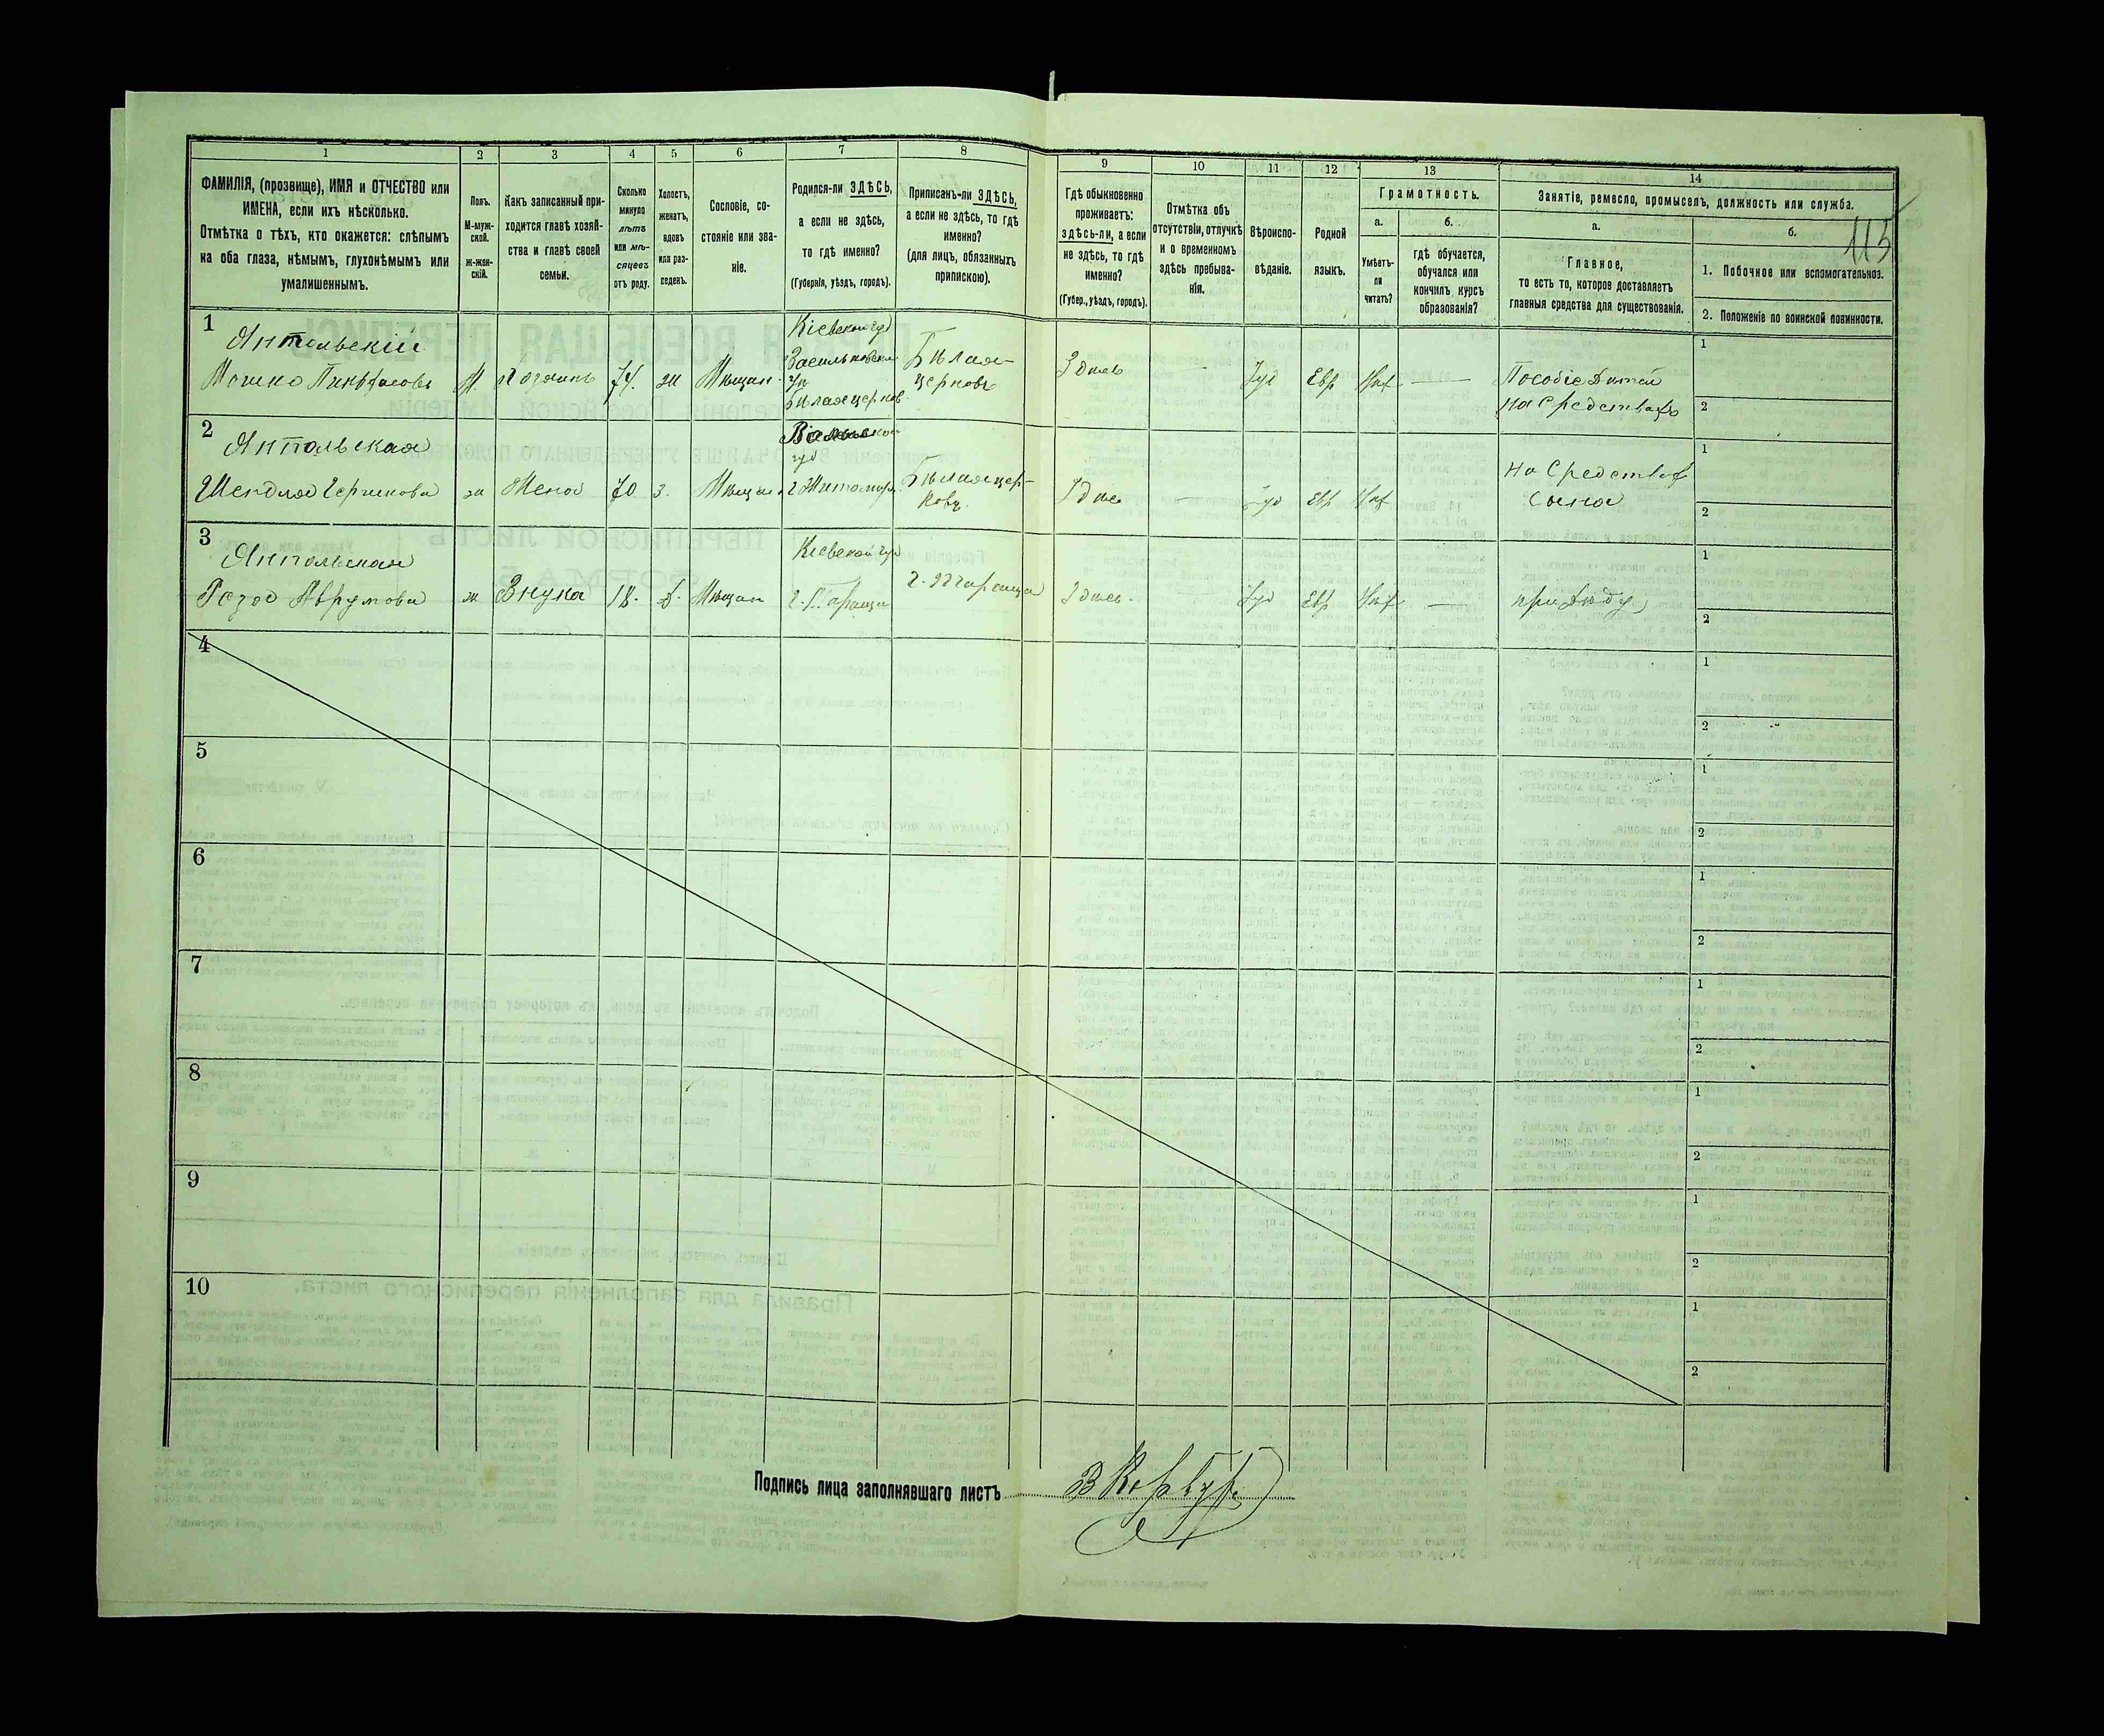 115
1
2
3
4
5
6
7
8
9
10
11
12
13
14
ФАМИЛІЯ, (прозвище), ИМЯ и ОТЧЕСТВО или
ИМЕНА, если ихъ нѣсколько.
Отмѣтка о тѣхъ, кто окажется: слѣпымъ
на оба глаза, нѣмымъ, глухонѣмымъ или
умалишеннымъ.
Полъ.
М-муж-
ской.
ж-жен-
скій.
Какъ записанный при-
ходится главѣ хозяй-
ства и главѣ своей
семьи.
Сколько
минуло
лѣтъ
или мѣ-
сяцевъ
отъ роду.
Холостъ,
женатъ,
вдовъ
или раз-
веденъ.
Сословіе, со-
стояніе или зва-
ніе.
Родился-ли ЗДѢСЬ,
а если не здѣсь,
то гдѣ именно?
(Губернія, уѣздъ, городъ).
Приписанъ-ли ЗДѢСЬ,
а если не здѣсь, то гдѣ
именно?
(для лицъ, обязанныхъ
припискою).
Гдѣ обыкновенно
проживаетъ:
здѣсь-ли, а если
не здѣсь, то гдѣ
именно?
(Губер., уѣздъ, городъ).
Отмѣтка объ
отсутствіи, отлучкѣ
и о временномъ
здѣсь пребыва-
ніи.
Вѣроиспо-
вѣданіе.
Родной
языкъ.
Грамотность.
а.
Умѣетъ-
ли
читать?
б.
гдѣ обучается,
обучался или
кончилъ курсъ
образованія?
Занятіе, ремесло, промыселъ, должность или служба.
а.
Главное,
то есть то, которое доставляетъ
главныя средства для существованія.
б.
1. Побочное или вспомогательное.
2. Положеніе по воинской повинности.
1
Янпольскій
Мошко
М
Хозяинъ
74
ж
Мѣщан
Кіевской губ
Васильковск
Бѣлаяцерков
Бѣлая-
церковь
Здѣсь
—
Іуд
Евр
Нѣт
—
Пособіе Дѣтей
На Средствах
1
2
2
Янпольская
Шендля
ж
Жена
70
з.
Мѣщан
губ
г Житомир
Бѣлаяцер-
ковь
Здѣсь
—
Іуд
Евр
Нѣт
На Средствах
Сына
1
2
3
Янпольская
Роза Аврумова
ж
Внука
18.
д.
Мѣщан
Кіевской губ
г. Тараща
г. Тараща
Здѣсь
—
Іуд
Евр
Нѣт
—
при Дѣду
1
2
4
1
2
5
1
2
6
1
2
7
1
2
8
1
2
9
1
2
10
1
2
Подпись лица заполнявшаго листъ